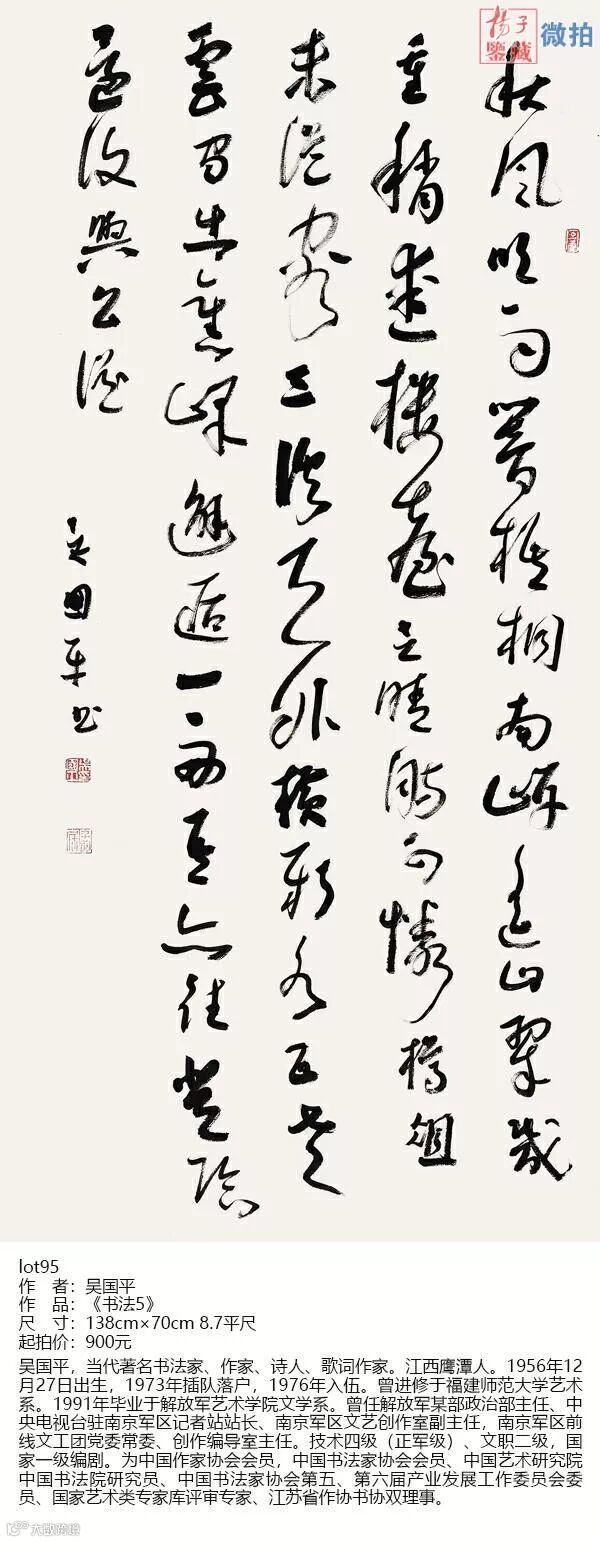 揚子
鑒藏
微拍
秋風吹雨梧桐南岸遥山翠幾
重稍樓臺晴可憐樽俎
未從容三天外橫新水五老
雲間出舊峰邂逅一亦往登臨
還復與公從
吴国平书
lot95
作 者：吴国平
作 品：《书法5》
尺 寸：138cm×70cm 8.7平尺
起拍价：900元
吴国平，当代著名书法家、作家、诗人、歌词作家。江西鹰潭人。1956年12
月27日出生，1973年插队落户，1976年入伍。曾进修于福建师范大学艺术
系。1991年毕业于解放军艺术学院文学系。曾任解放军某部政治部主任、中
央电视台驻南京军区记者站站长、南京军区文艺创作室副主任，南京军区前
线文工团党委常委、创作编导室主任。技术四级（正军级）、文职二级，国
家一级编剧。为中国作家协会会员，中国书法家协会会员、中国艺术研究院
中国书法院研究员、中国书法家协会第五、第六届产业发展工作委员会委
员、国家艺术类专家库评审专家、江苏省作协书协双理事。
大欧跨境